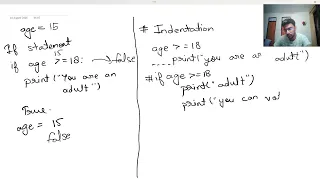 age = 15
If statement
15
if age >= 18: → false
print("You are an adult")
True.
age = 15
false
# Indentation
age >= 18
.....print("you are an adult")
# if age >= 18
print("adult")
print("you can